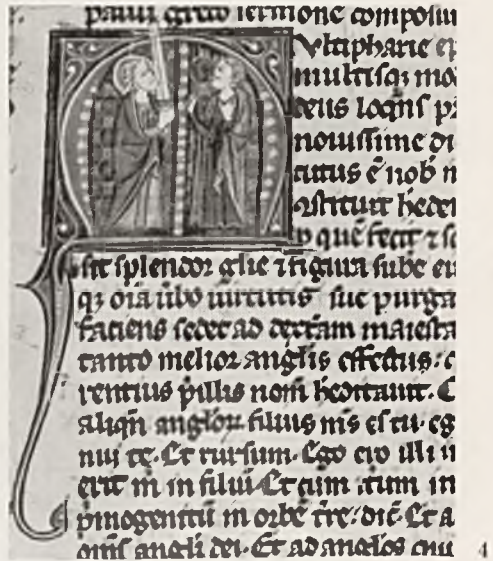 pauli greco sermone composu
Vltipharie
multisq; mo
deus loqns p
nouissime di
cutus ē nob
ostituit hede
p quē fecit ⁊
sit splendor glie ⁊ figura sube ei
q; oīa ūbo uirtutis sue purga
faciens sedet ad dextam maiesta
tanto melior anglis effectus. e
rentius pillis nom hoditauit.
aliqn anglor filius ms es tu. eg
nui te. Et rursum. Ego ero illi i
erit m in filiū. Et cum itum in
pmogenitū in orbē tre. dic̄. Et a
oms angli dei. Et ad anglos
4